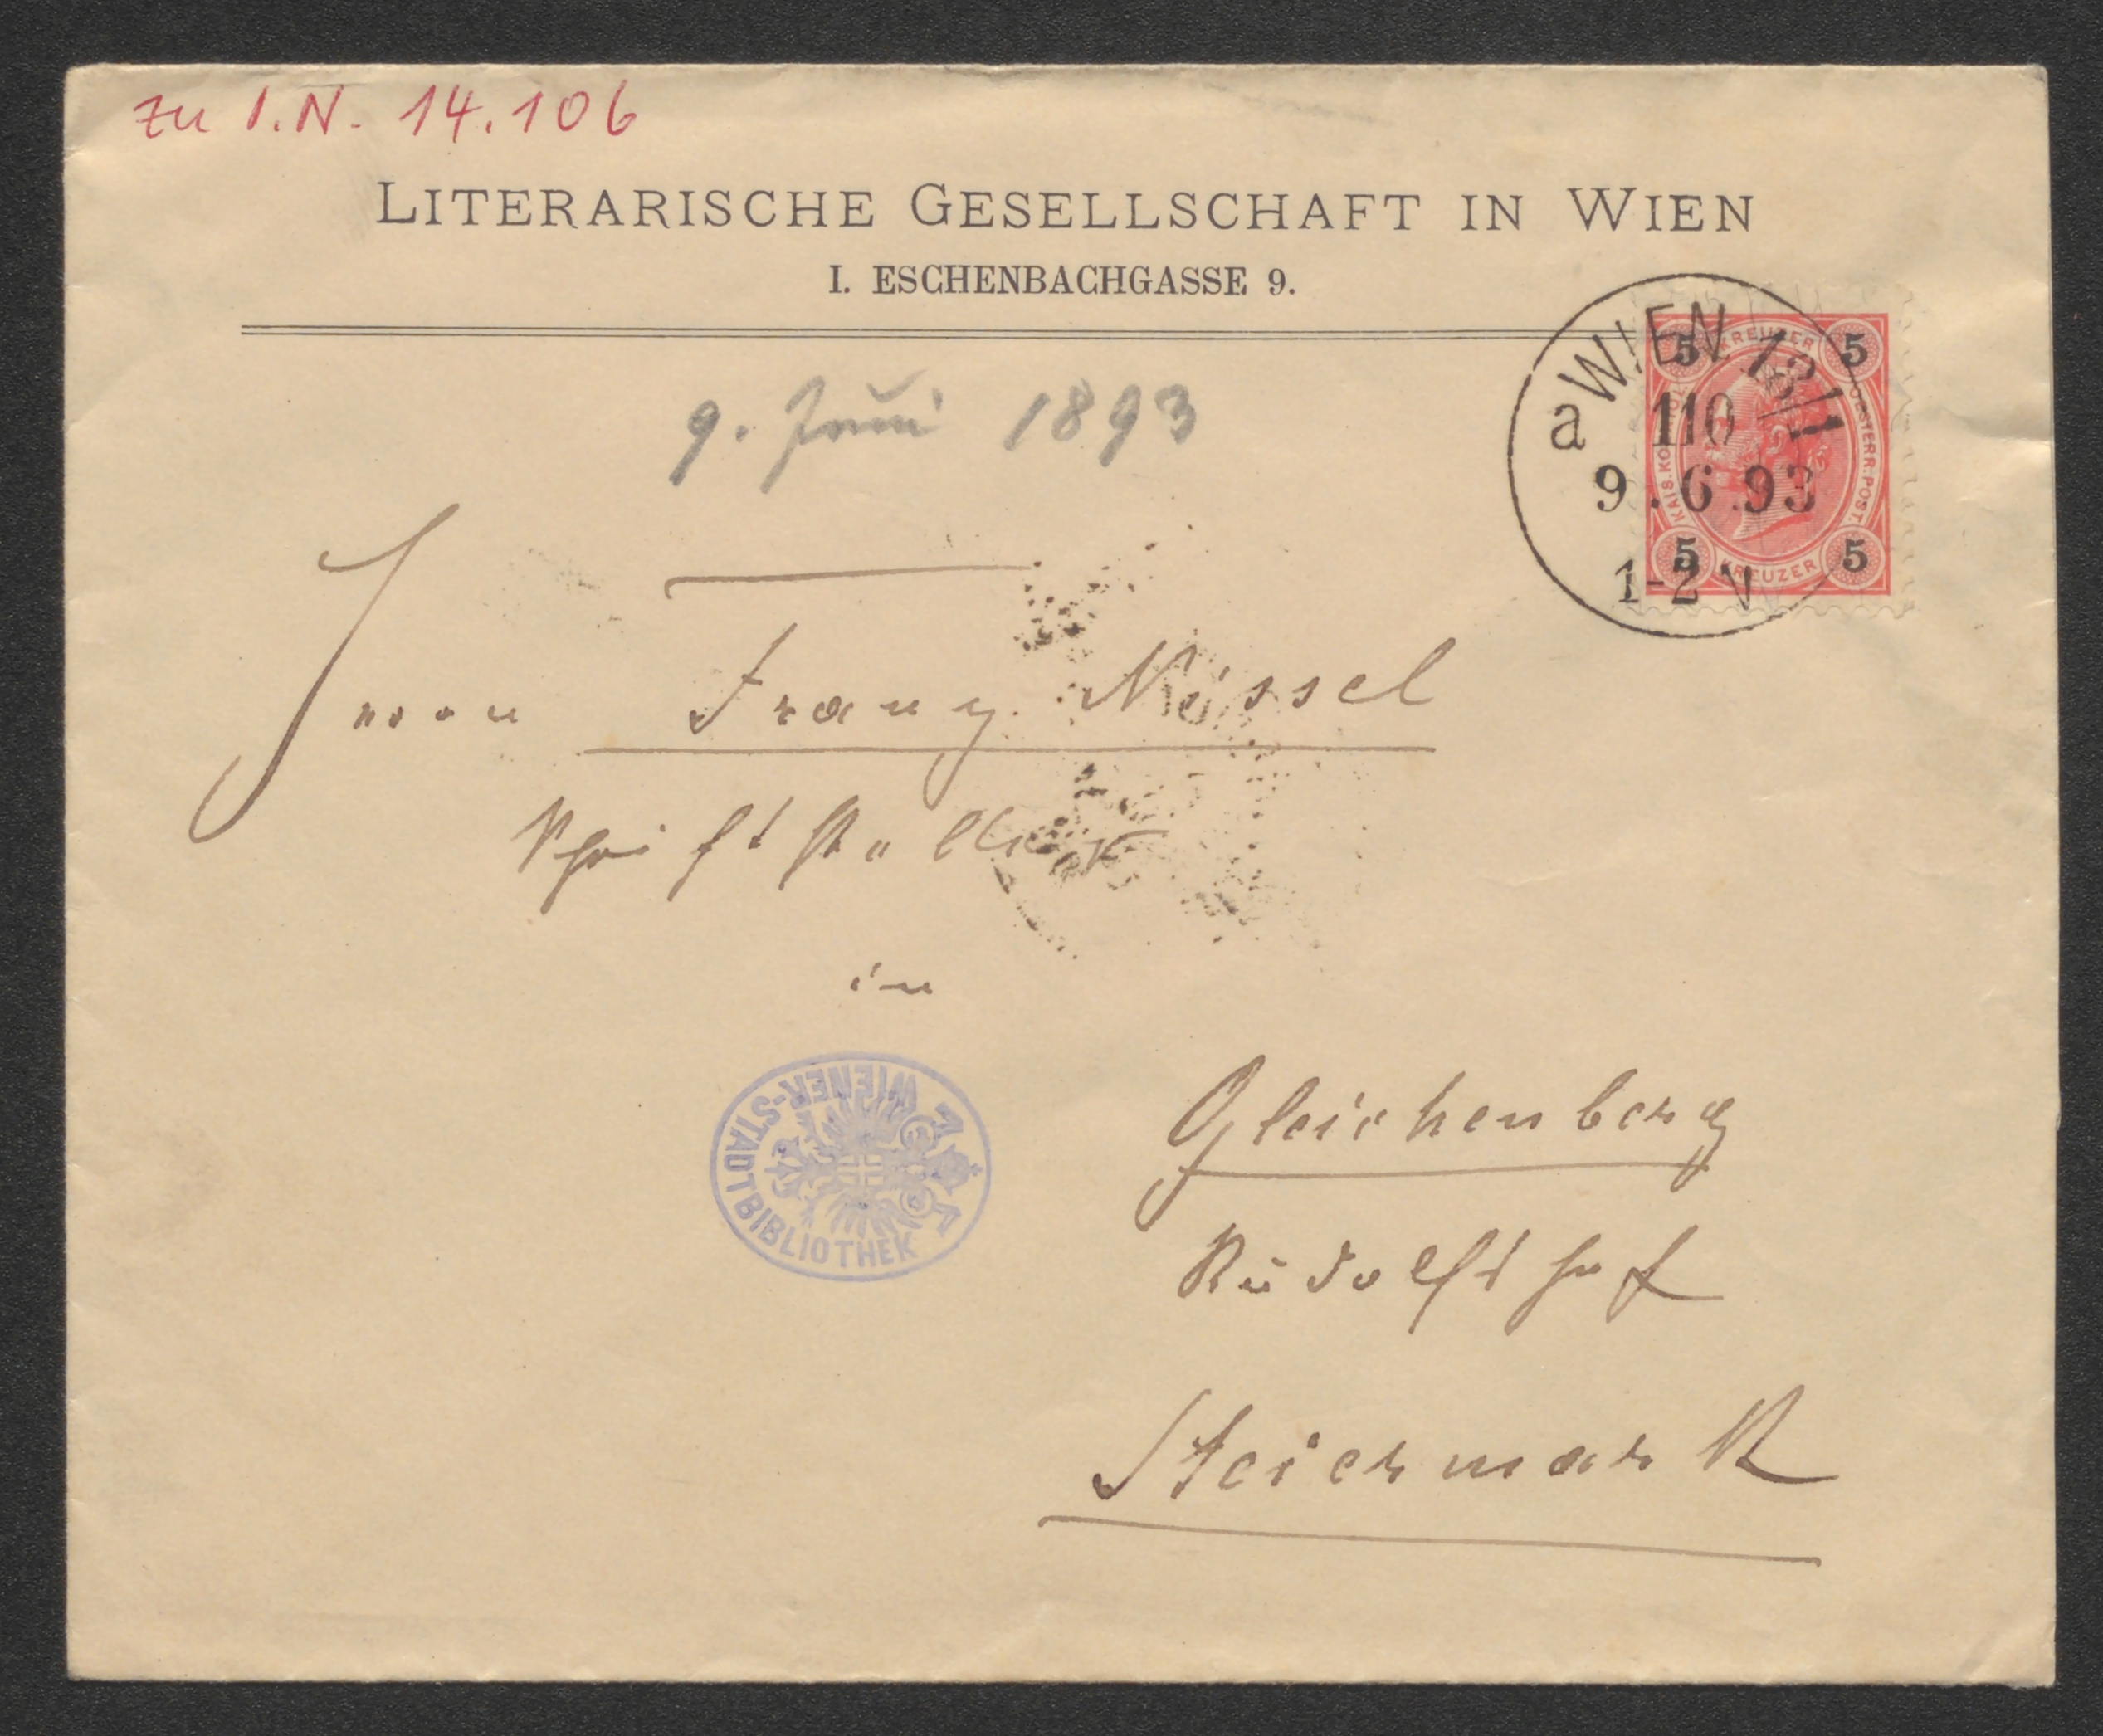 zu I.N. 14.106
LITERARISCHE GESELLSCHAFT IN WIEN
I. ESCHENBACHGASSE 9.
WIEN 18/1
a 110
9.6.93
1-2 N
5 KREUZER 5
KAIS. KÖNIGL. OESTERR. POST.
5 KREUZER 5
9. Juni 1893
Herrn Franz Nissel
Schriftsteller
in
WIENER-STADTBIBLIOTHEK
Gleichenberg
Rudolfshof
Steiermark